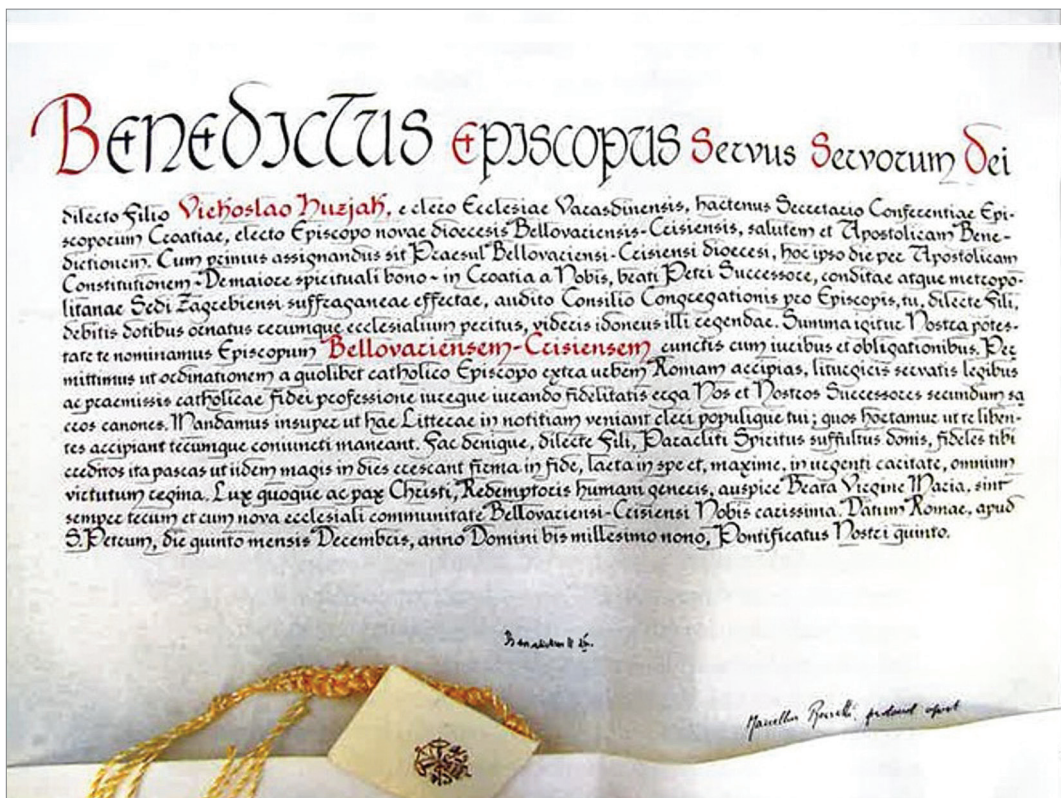 BENEDICTUS EPISCOPUS Servus Servorum Dei
dilecto Filio Viekoslao Huzjak, e clero Ecclesiae Varasdinensis, hactenus Secretario Conferentiae Epi-
scoporum Croatiae, electo Episcopo novae dioecesis Bellovariensis-Crisiensis, salutem et Apostolicam Bene-
dictionem. Cum primus assignandus sit Praesul Bellovariensi-Crisiensi dioecesi, hoc ipso die per Apostolicam
Constitutionem - De maiore spirituali bono - in Croatia a Nobis, beati Petri Successore, conditae atque metropo-
litanae Sedi Zagrebiensi suffraganeae effectae, audito Consilio Congregationis pro Episcopis, tu, dilecte fili,
debitis dotibus ornatus rerumque ecclesialium peritus, videris idoneus illi regendae. Summa igitur Nostra potes-
tate te nominamus Episcopum Bellovariensem-Crisiensem cunctis cum iuribus et obligationibus. Per
mittimus ut ordinationem a quolibet catholico Episcopo extra urbem Romam accipias, liturgicis servatis legibus
ac praemissis catholicae fidei professione iureque iurando fidelitatis erga Nos et Nostros Successores secundum sa
cros canones. Mandamus insuper ut hae Litterae in notitiam veniant cleri populique tui; quos hortamur ut te liben-
tes accipiant tecumque coniuncti maneant. Fac denique, dilecte Fili, Paracliti Spiritus suffultus donis, fideles tibi
creditos ita pascas ut iidem magis in dies crescant firma in fide, laeta in spe et, maxime, in urgenti caritate, omnium
virtutum regina. Lux quoque ac pax Christi, Redemptoris humani generis, auspice Beata Virgine Maria, sint
semper tecum et cum nova ecclesiali communitate Bellovariensi-Crisiensi Nobis carissima. Datum Romae, apud
S. Petrum, die quinto mensis Decembris, anno Domini bis millesimo nono, Pontificatus Nostri quinto.